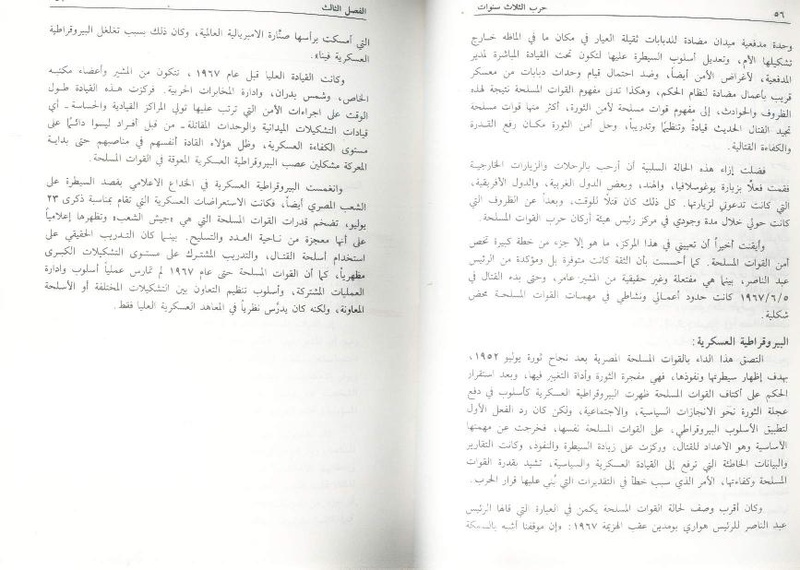 ٥٦
حرب الثلاث سنوات
وحدة مدفعية ميدان مضادة للدبابات ثقيلة العيار في مكان ما في الماظه خارج
تشكيلها الأم، وتعديل أسلوب السيطرة عليها لتكون تحت القيادة المباشرة لمدير
المدفعية، لأغراض الأمن أيضاً، وضد احتمال قيام وحدات دبابات من معسكر
قريب بأعمال مضادة لنظام الحكم، وهكذا تدنى مفهوم القوات المسلحة نتيجة لهذه
الظروف والحوادث، إلى مفهوم قوات مسلحة لأمن الثورة، أكثر منها قوات مسلحة
تجيد القتال الحديث قيادةً وتنظيماً وتدريباً، وحل أمن الثورة مكان رفع القدرة
والكفاءة القتالية.
فضلت إزاء هذه الحالة السلبية أن أرحب بالرحلات والزيارات الخارجية
فقمت فعلاً بزيارة يوغوسلافيا، والهند، وبعض الدول الغربية، والدول الأفريقية،
التي كانت تدعوني لزيارتها. كل ذلك كان قتلاً للوقت، وبعداً عن الظروف التي
كانت حولي خلال مدة وجودي في مركز رئيس هيئة أركان حرب القوات المسلحة.
وأيقنت أخيراً أن تعييني في هذا المركز، ما هو إلا جزء من خطة كبيرة تخص
أمن القوات المسلحة. كما أحسست بأن الثقة كانت متوفرة بل ومؤكدة من الرئيس
عبد الناصر، بينما هي مفتعلة وغير حقيقية من المشير عامر، وحتى بدء القتال في
١٩٦٧/٦/٥ كانت حدود أعمالي ونشاطي في مهمات القوات المسلحة محض
شكلية.
البيروقراطية العسكرية:
التصق هذا الداء بالقوات المسلحة المصرية بعد نجاح ثورة يوليو ١٩٥٢،
بهدف إظهار سيطرتها ونفوذها، فهي مفجرة الثورة وأداة التغيير فيها، وبعد استقرار
الحكم على أكتاف القوات المسلحة ظهرت البيروقراطية العسكرية كأسلوب في دفع
عجلة الثورة نحو الانجازات السياسية، والاجتماعية، ولكن كان رد الفعل الأول
لتطبيق الأسلوب البيروقراطي، على القوات المسلحة نفسها، فخرجت عن مهمتها
الأساسية وهو الاعداد للقتال، وركزت على زيادة السيطرة والنفوذ، وكانت التقارير
والبيانات الخاطئة التي ترفع إلى القيادة العسكرية والسياسية، تشيد بقدرة القوات
المسلحة وكفاءتها، الأمر الذي سبب خطأ في التقديرات التي بُني عليها قرار الحرب.
وكان أقرب وصف لحالة القوات المسلحة يكمن في العبارة التي قالها الرئيس
عبد الناصر للرئيس هواري بومدين عقب الهزيمة ١٩٦٧: «إن موقفنا أشبه بالسمكة
الفصل الثالث
التي أمسكت برأسها صنّارة الامبريالية العالمية، وكان ذلك بسبب تغلغل البيروقراطية
العسكرية فيناء.
وكانت القيادة العليا قبل عام ١٩٦٧، تتكون من المشير وأعضاء مكتبه
الخاص، وشمس بدران، وادارة المخابرات الحربية. فركزت هذه القيادة طول
الوقت على اجراءات الأمن التي ترتب عليها تولي المراكز القيادية والحساسة ـ أي
قيادات التشكيلات الميدانية والوحدات المقاتلة ـ من قبل أفراد ليسوا دائماً على
مستوى الكفاءة العسكرية، وظل هؤلاء القادة أنفسهم في مناصبهم حتى بداية
المعركة مشكلين عصب البيروقراطية العسكرية المعوقة في القوات المسلحة.
وانغمست البيروقراطية العسكرية في الخداع الاعلامي بقصد السيطرة على
الشعب المصري أيضاً، فكانت الاستعراضات العسكرية التي تقام بمناسبة ذكرى ٢٣
يوليو، تضخم قدرات القوات المسلحة التي هي «جيش الشعب» وتظهرها إعلامياً
على أنها معجزة من ناحية العدد والتسليح. بينما كان التدريب الحقيقي على
استخدام أسلحة القتال، والتدريب المشترك على مستوى التشكيلات الكبرى
مظهرياً، كما أن القوات المسلحة حتى عام ١٩٦٧ لم تمارس عملياً أسلوب وادارة
العمليات المشتركة، وأسلوب تنظيم التعاون بين التشكيلات المختلفة أو الأسلحة
المعاونة، ولكنه كان يدرَّس نظرياً في المعاهد العسكرية العليا فقط.